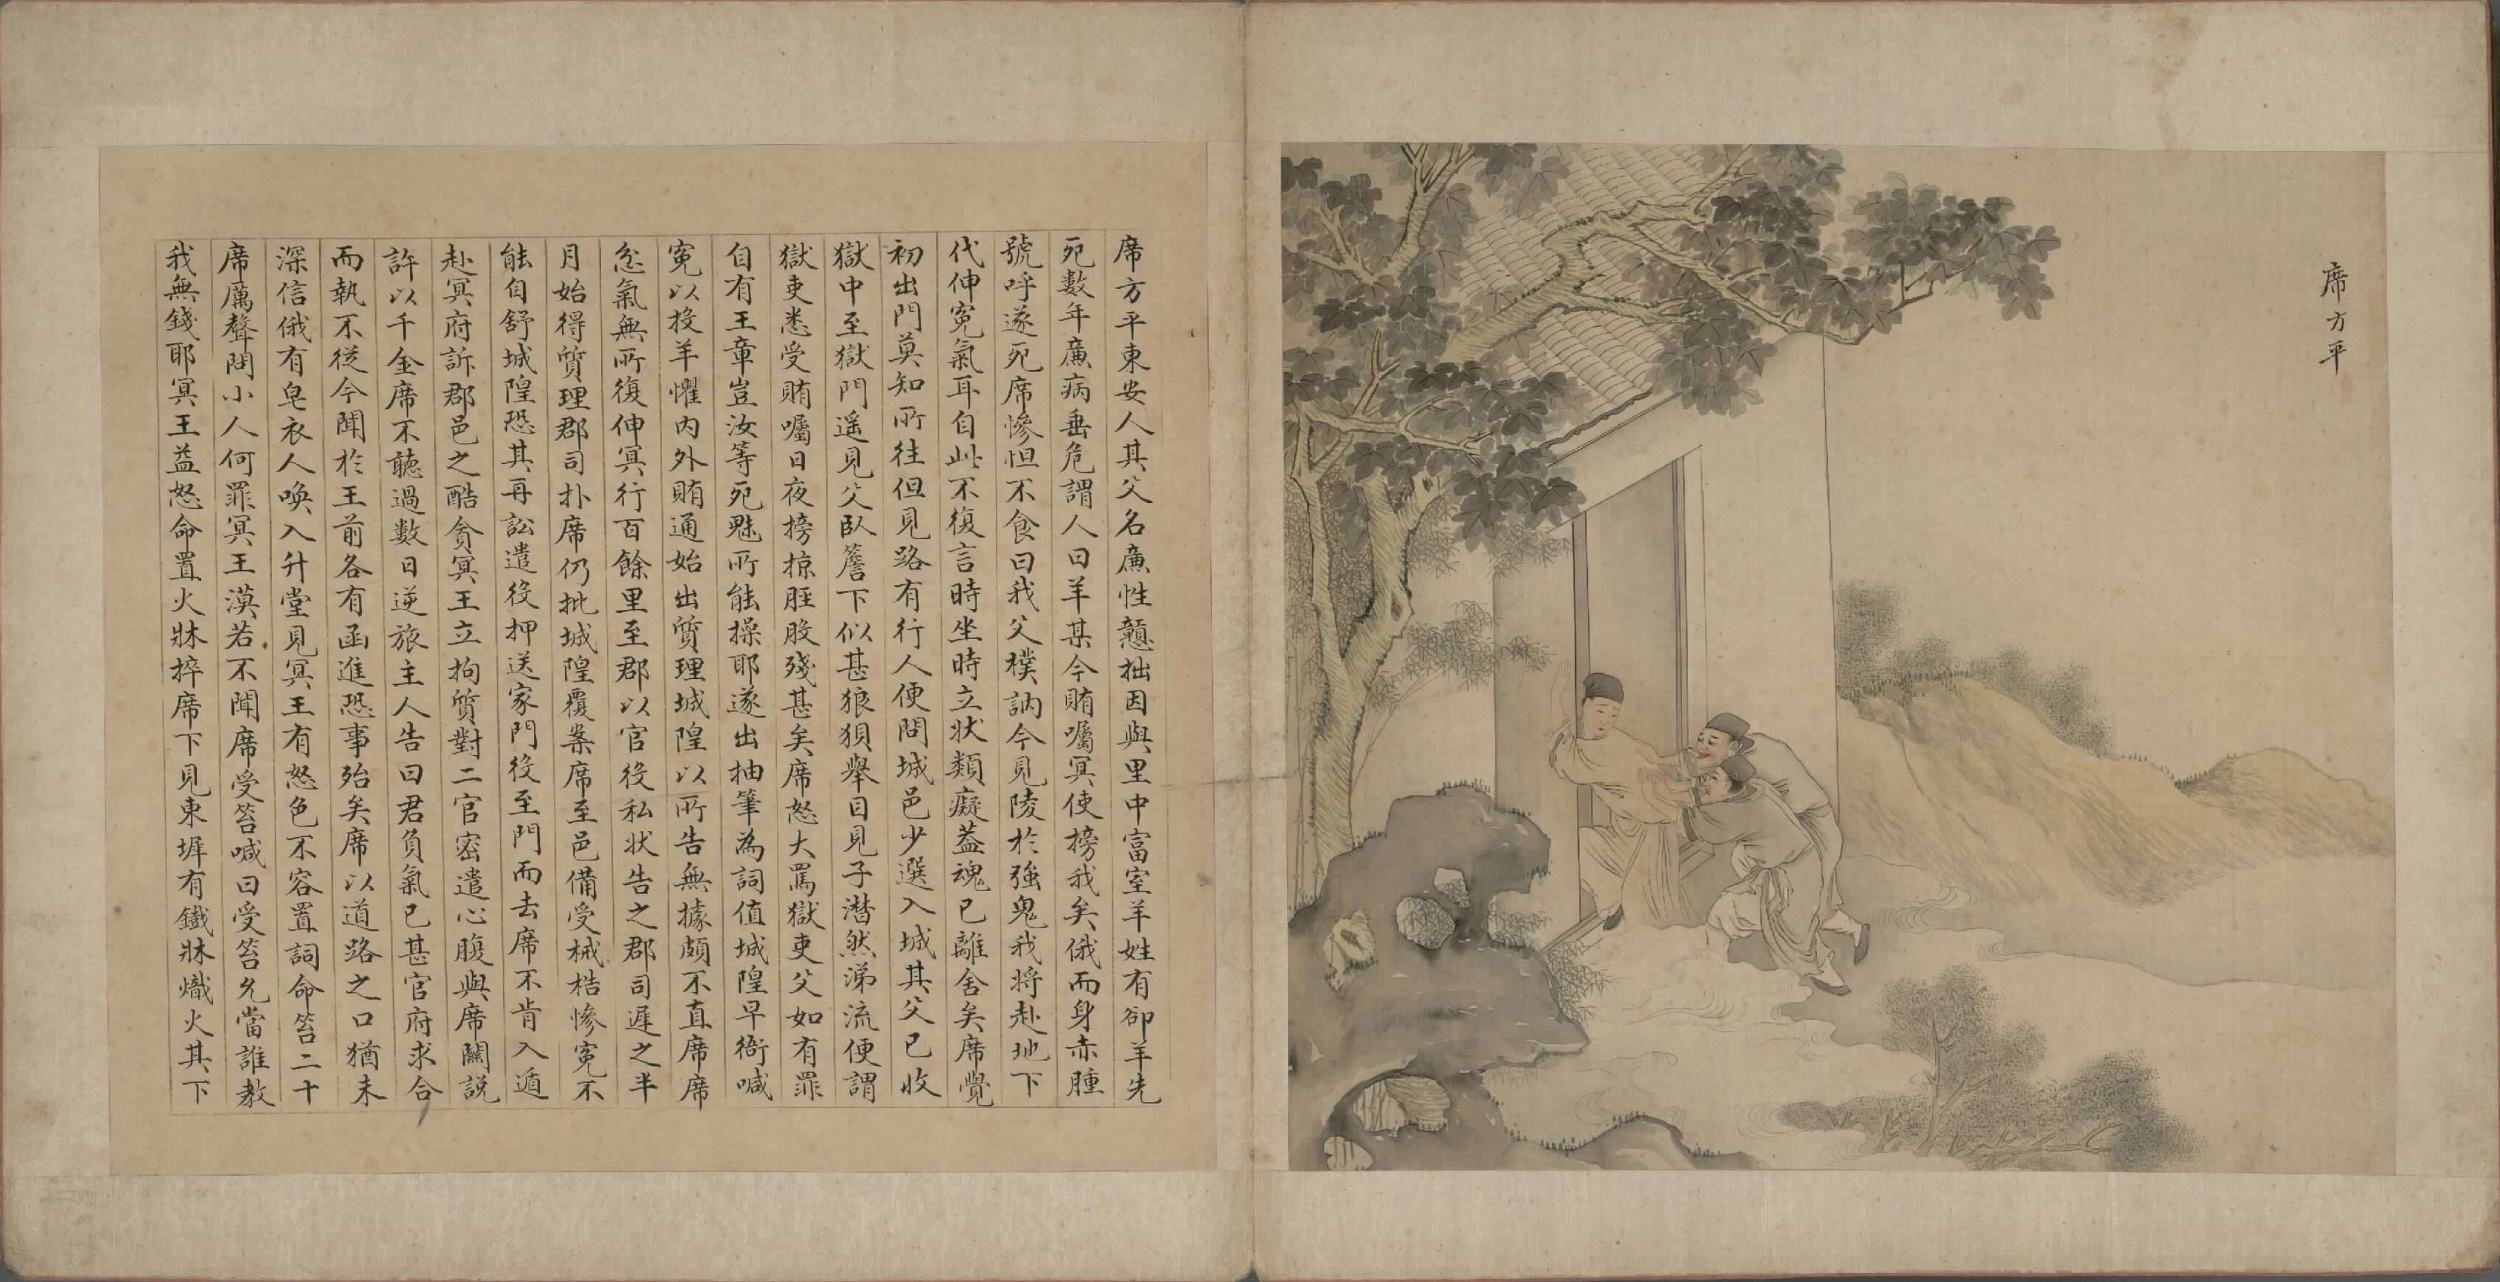 席方平
席方平東安人其父名廉性戇拙因與里中富室羊姓有郤羊先
死數年廉病垂危謂人曰羊某今賄囑冥使搒我矣俄而身赤腫
號呼遂死席慘怛不食曰我父樸訥今見陵於強鬼我將赴地下
代伸冤氣耳自此不復言時坐時立狀類癡蓋魂已離舍矣席覺
初出門莫知所往但見路有行人便問城邑少選入城其父已收
獄中至獄門遥見父臥簷下似甚狼狽舉目見子潸然涕流便謂
獄吏悉受賄囑日夜搒掠脛股殘甚矣席怒大罵獄吏父如有罪
自有王章豈汝等死魅所能操耶遂出抽筆為詞值城隍早衙喊
冤以投羊懼內外賄通始出質理城隍以所告無據頗不直席席
忿氣無所復伸冥行百餘里至郡以官役私狀告之郡司遲之半
月始得質理郡司扑席仍批城隍覆案席至邑備受械梏慘冤不
能自舒城隍恐其再訟遣役押送家門役至門而去席不肯入遁
赴冥府訴郡邑之酷貪冥王立拘質對二官密遣心腹與席關説
許以千金席不聽過數日逆旅主人告曰君負氣已甚官府求合
而執不從今聞於王前各有函進恐事殆矣席以道路之口猶未
深信俄有皂衣人喚入升堂見冥王有怒色不容置詞命笞二十
席厲聲問小人何罪冥王漠若不聞席受笞喊曰受笞允當誰教
我無錢耶冥王益怒命置火牀捽席下見東墀有鐵牀熾火其下